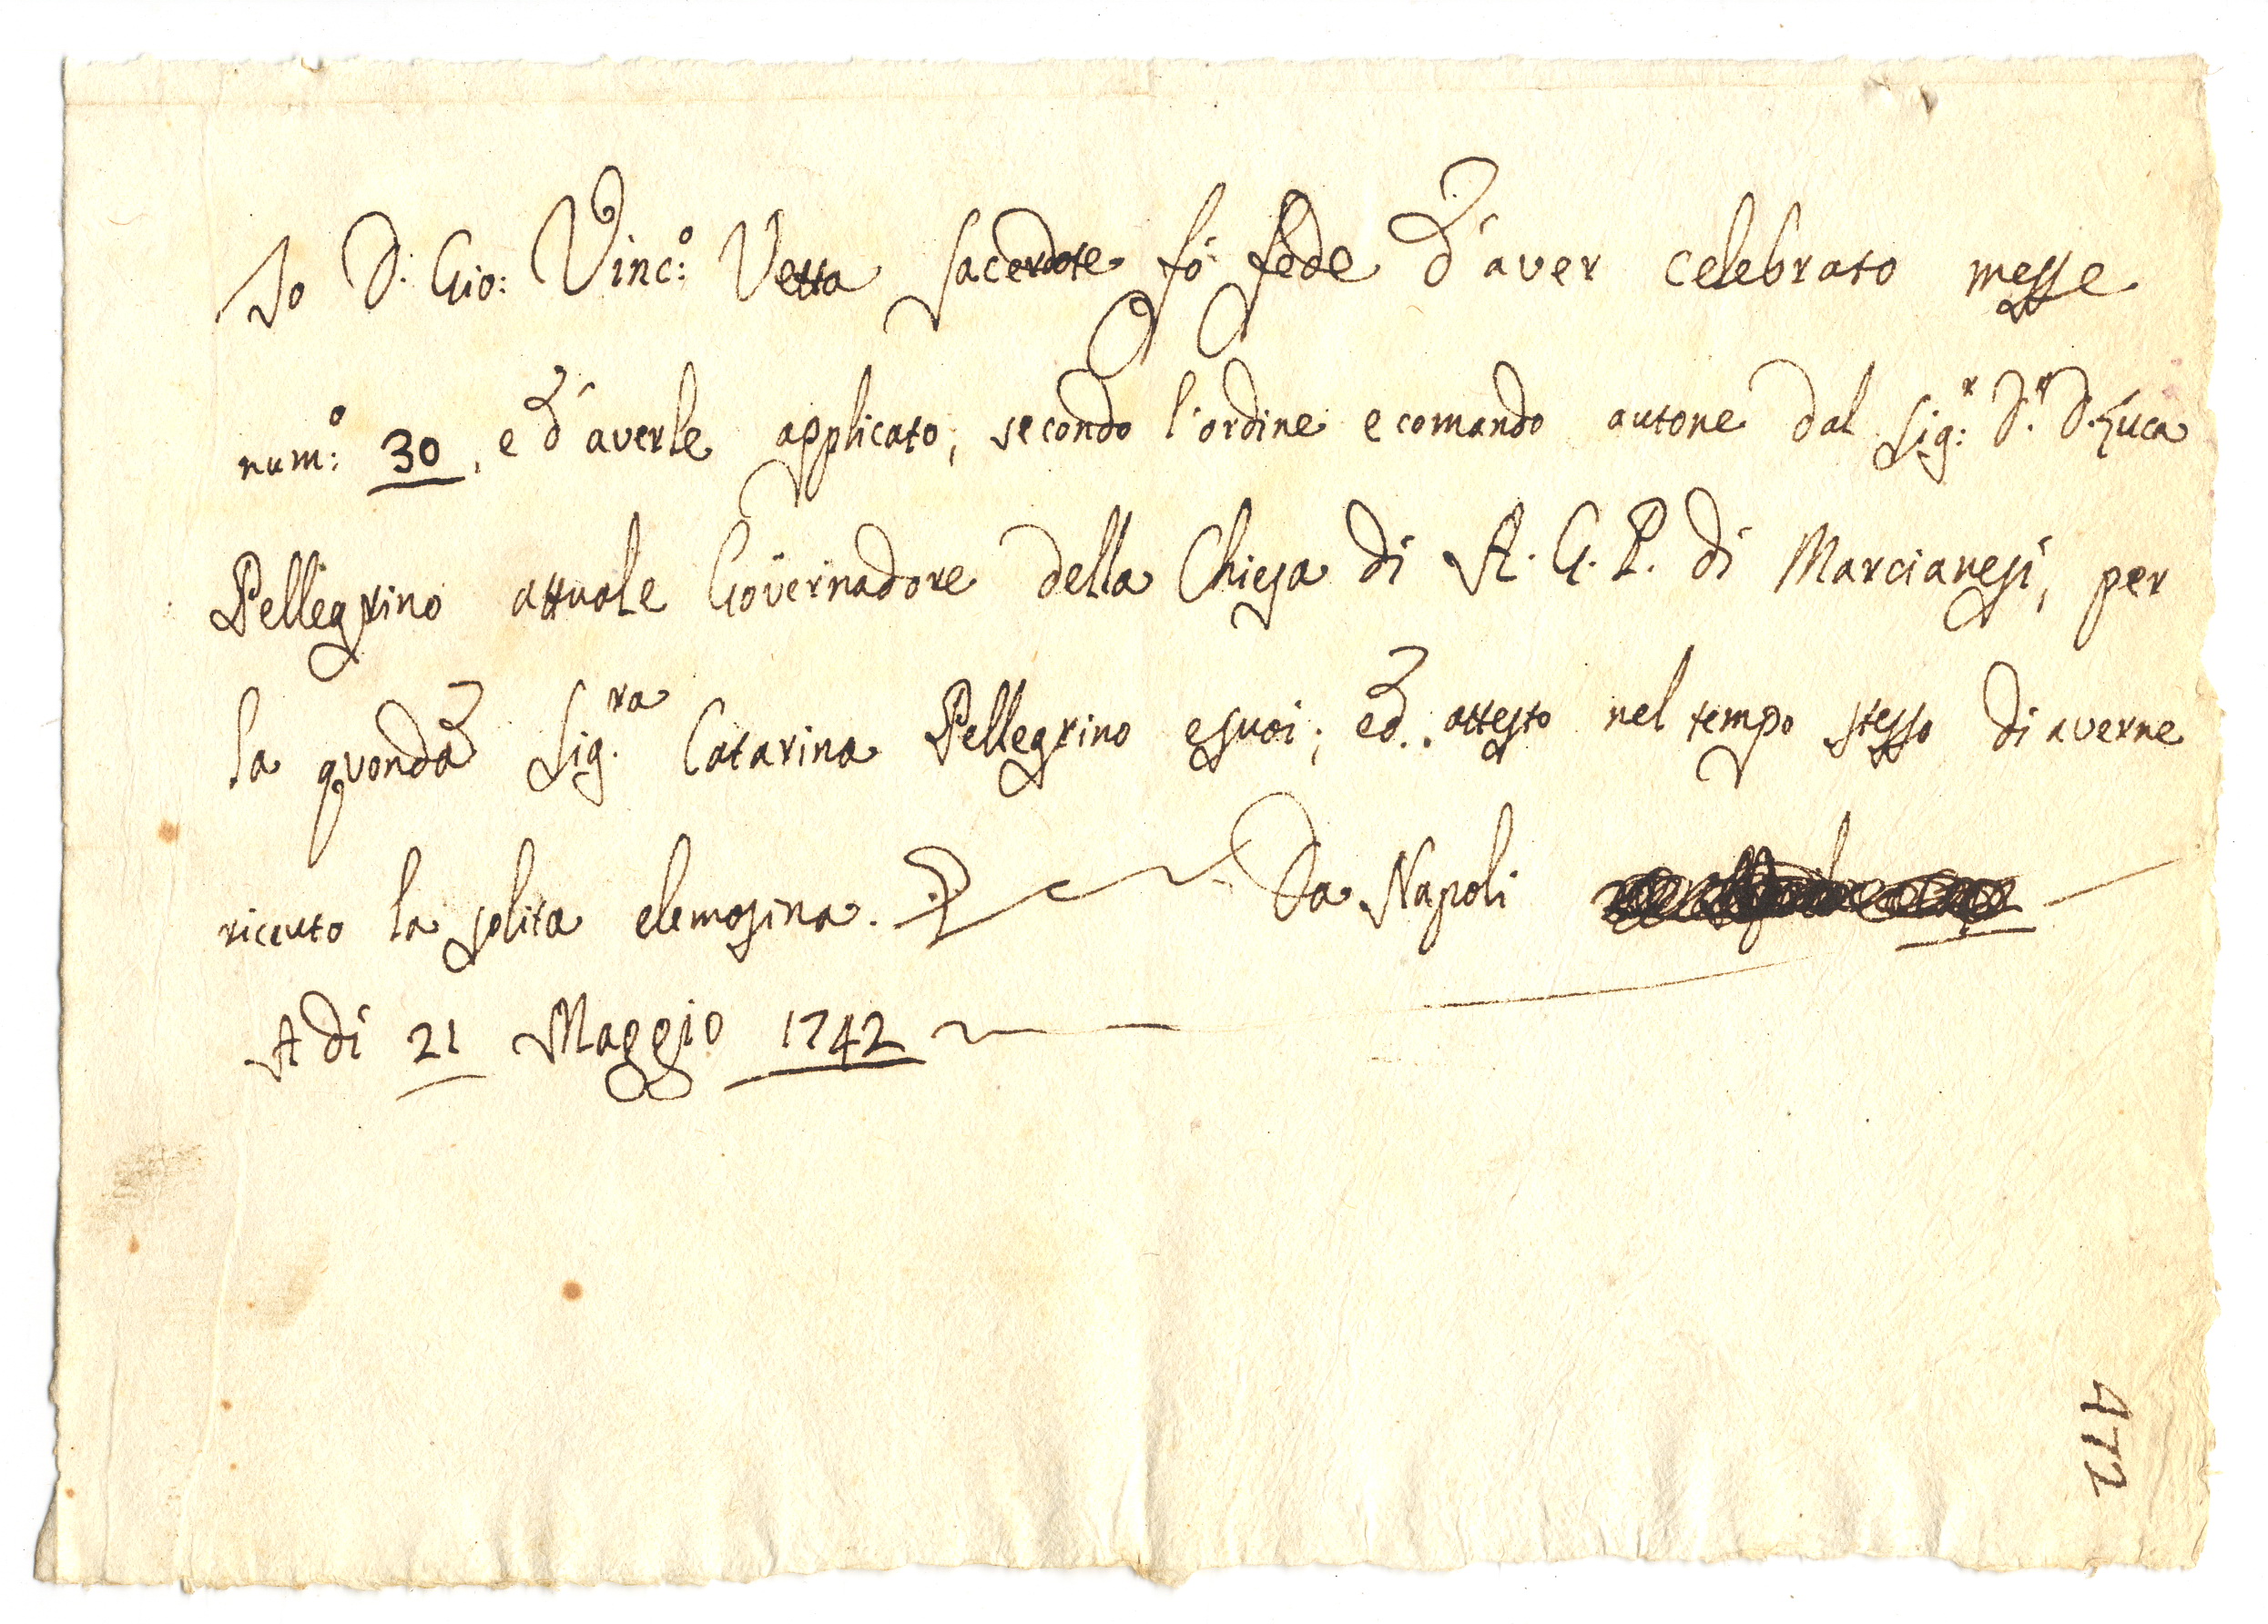 Io D. Gio: Vinc:º Vetta sacerdote fò fede d'aver celebrato messe
num:º 30, e d'averle applicato, secondo l'ordine e comando autone dal Sig:r D.r D. Luca
Pellegrino attuale Governadore della Chiesa di A. G. P. di Marcianesi, per
la quondã Sig.ra Catarina Pellegrino e suoi; ed.. attesto nel tempo stesso di averne
riceuto la solita elemosina. Da Napoli
A di 21 Maggio 1742
472